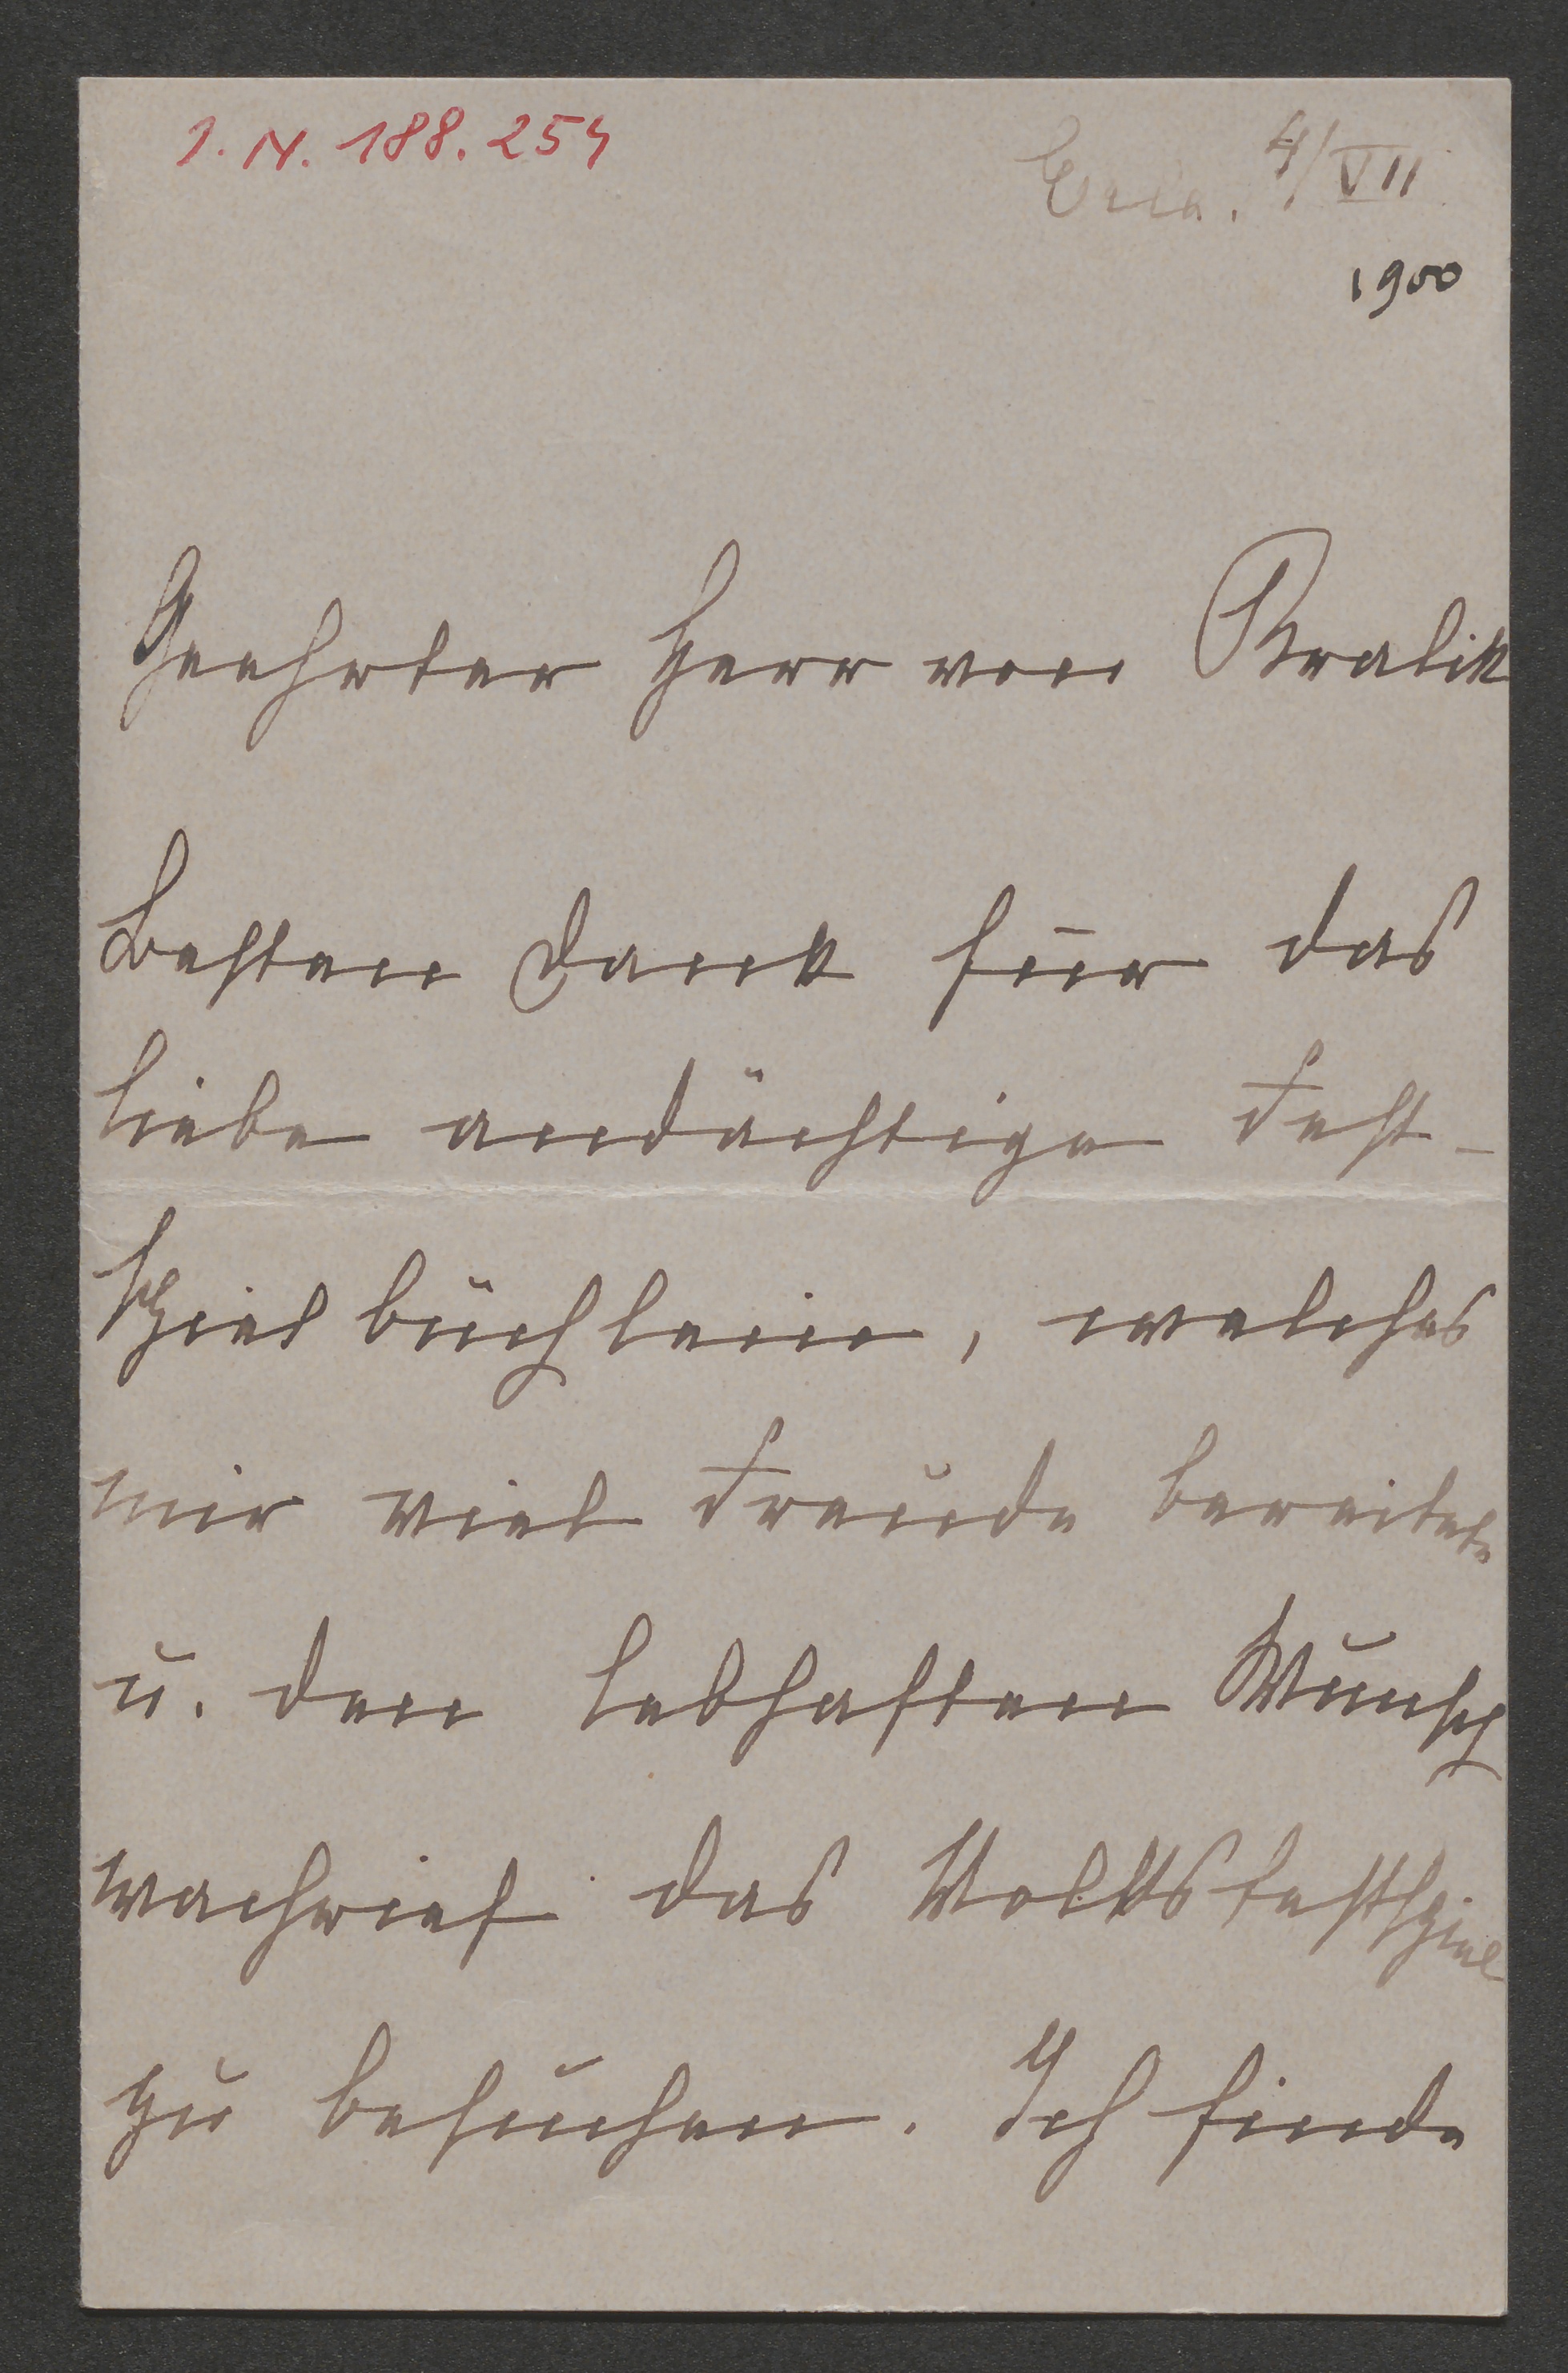 I. N. 188.254
Erla. 4/VII
1900
Geehrter Herr von Kralik
Besten Dank für das
liebe andächtige Fest-
spielbüchlein, welches
mir viel Freude bereitete
u. den lebhaften Wunsch
wachrief das Volksfestspiel
zu besuchen. Ich finde